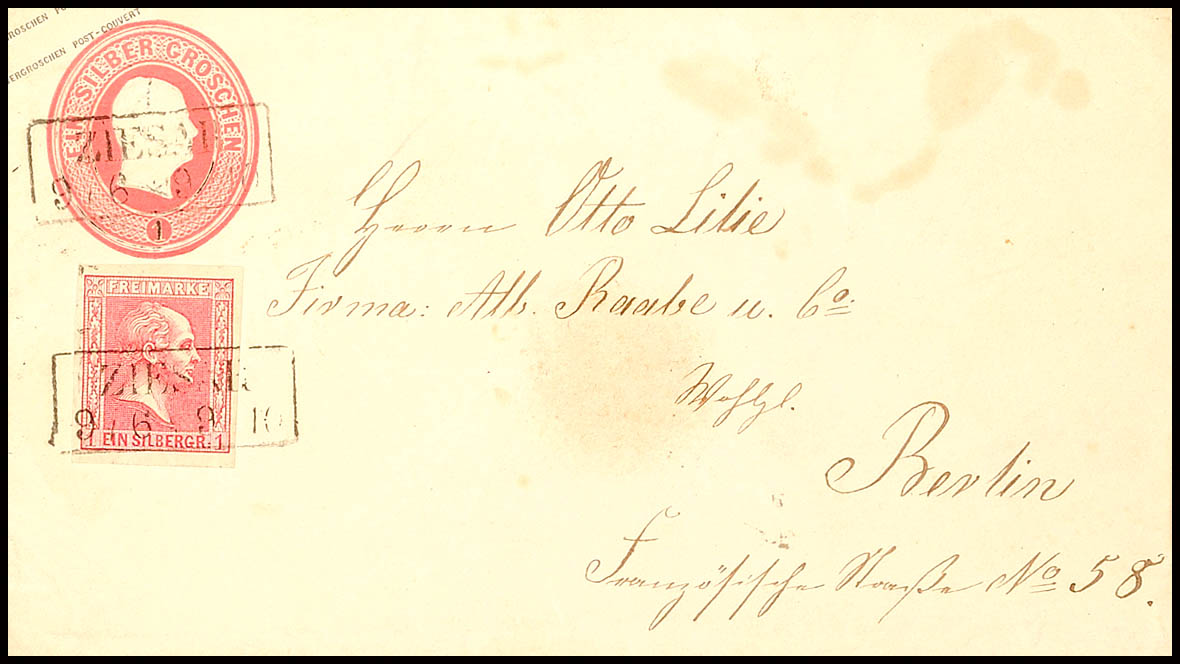 GROSCHEN PO
ERGROSCHEN POST-COUVERT
EIN SILBER GROSCHEN
1
ZIESAR
9 6 9
FREIMARKE
ZIESAR
9 6 9 10
1 EIN SILBERGR. 1
Herrn Otto Lilie
Firma: Alb. Raabe u. Co
Wohlgl.
Berlin
Französische Straße No 58.